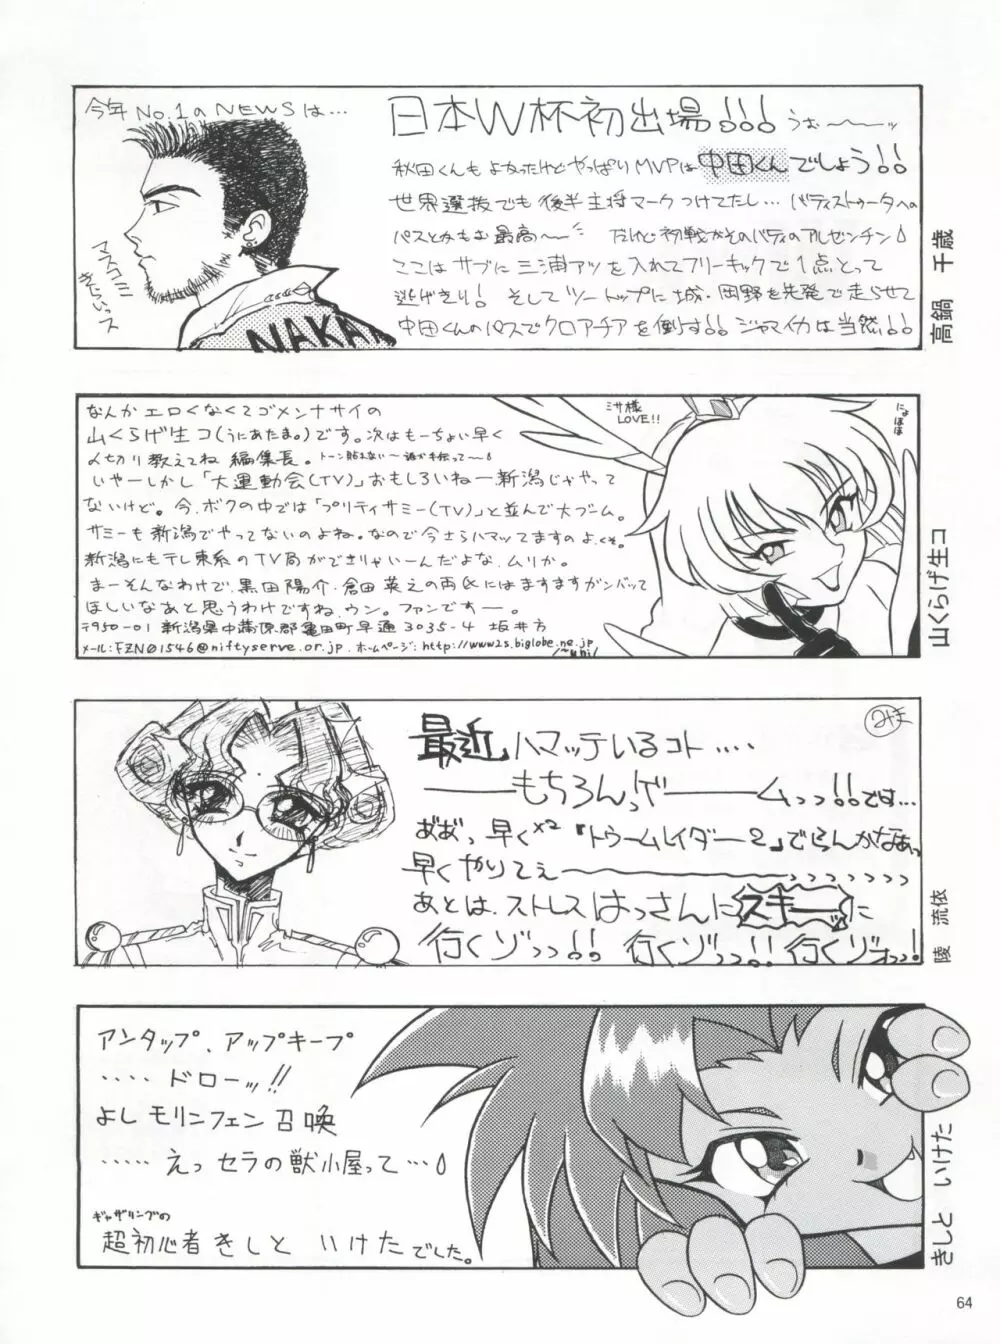 今年No.1のNEWSは…
日本W杯初出場!!! うぉ〜〜ッ
秋田くんもよかったけどやっぱりMVPは中田くんでしょう!!
世界選抜でも後半主将マークつけてたし…バティストゥータへの
パスとかもお最高〜 だけど初戦がそのバティのアルゼンチン
ここはサブに三浦アツを入れてフリーキックで1点とって
逃げきり! そしてツートップに城・岡野を先発で走らせて
中田くんのパスでクロアチアを倒す!! ジャマイカは当然!!!
マスコミ
きらいっス
NAKA
高鍋 千歳
なんかエロくなくてゴメンナサイの
山くらげ生コ(うにあたま。)です。次はもーちょい早く
〆切り教えてね 編集長。トーン貼れない〜誰か手伝って〜
いやーしかし「大運動会(TV)」おもしろいねー新潟じゃやって
ないけど。今、ボクの中では「プリティサミー(TV)」と並んで大ブーム。
サミーも新潟でやってないのよね。なので今さらハマッてますのよ、くそ。
新潟にもテレ東系のTV局ができりゃいーんだよな、ムリか。
まーそんなわけで、黒田陽介・倉田英之の両氏にはますますガンバッて
ほしいなあと思うわけですね、ウン。ファンですー。
〒950-01 新潟県中蒲原郡亀田町早通3035-4 坂井方
メール:FZN01546@niftyserve.or.jp. ホームページ:http://www2s.biglobe.ne.jp
/~uni/
ミサ様
LOVE!!
にょほほ
山くらげ生コ
最近ハマッテいるコト‥‥
——もちろんっゲ——ムっっ!!です…
ああっ早く×2『トゥームレイダー2』でらんかなぁっ
早くやりてぇ————っっっっっっっ
あとは、ストレスはっさんにスキーッに
行くゾっっ!! 行くゾっっ!! 行くゾォっっ!
陵 流依
アンタップ、アップキープ
‥‥ドローッ!!
よし モリンフェン召喚
‥‥‥えっ セラの獣小屋って…
ギャザリングの
超初心者きしと いけたでした。
きしと いけた
64